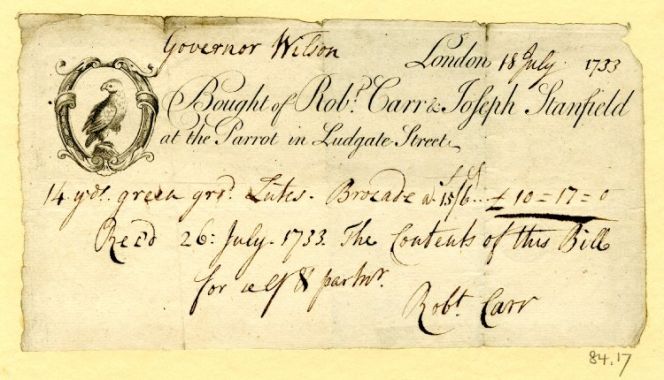 Governor Wilson
London 18 July 1733
Bought of Robt. Carr & Joseph Stanfield
at the Parrot in Ludgate Street,
14 yds. green grd. Lutes. Brocade a 15/6 ... £ 10=17=0
Rec'd 26: July. 1733. The Contents of this Bill
for self & partnr.
Robt. Carr
84.17